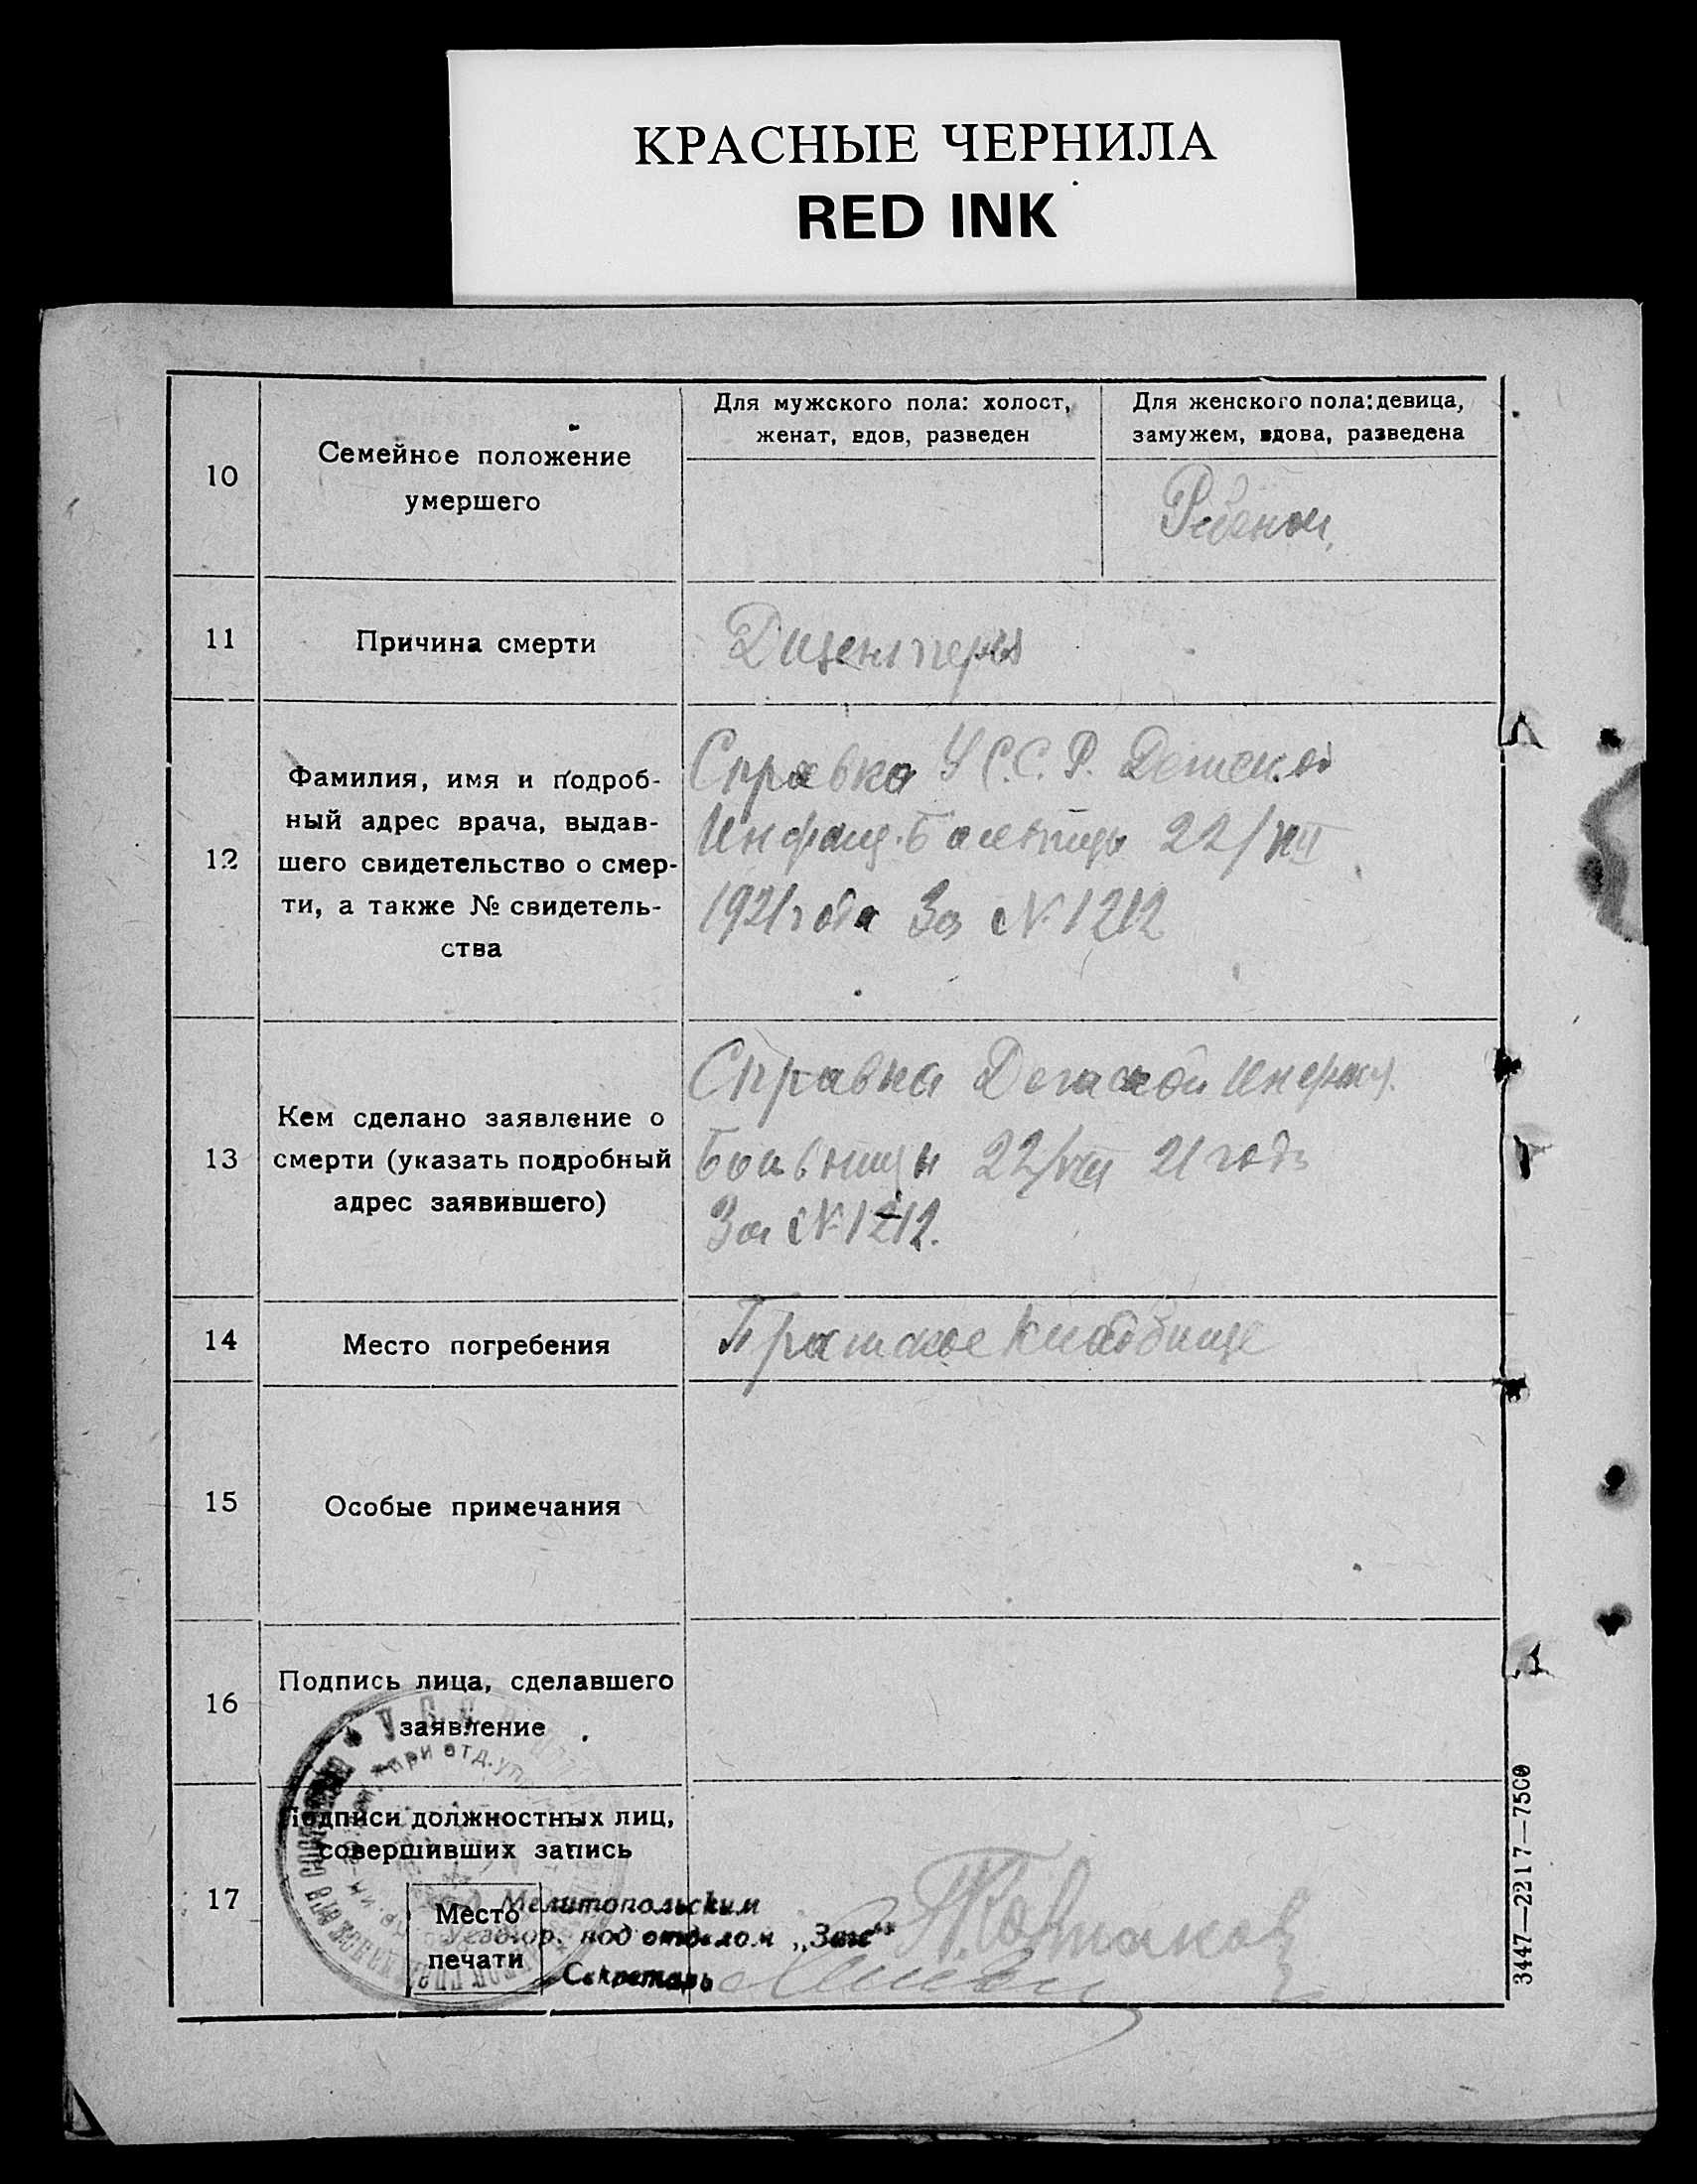 КРАСНЫЕ ЧЕРНИЛА
RED INK
10
Семейное положение
умершего
Для мужского пола: холост,
женат, вдов, разведен
Для женского пола: девица,
замужем, вдова, разведена
Ребенок
11
Причина смерти
Дизентерия
12
Фамилия, имя и подроб-
ный адрес врача, выдав-
шего свидетельство о смер-
ти, а также № свидетель-
ства
Справка У С.С.Р. Детской
Инфекц. Больницы 22/VIII
1921 года За № 1212
13
Кем сделано заявление о
смерти (указать подробный
адрес заявившего)
Справка Детской Инфекц.
Больницы 22/VIII 21 года
За № 1212.
14
Место погребения
Братское кладбище
15
Особые примечания
16
Подпись лица, сделавшего
заявление
17
Подписи должностных лиц,
совершивших запись
Место
печати
Мелитопольским
под отделом „Загс"
Секретарь
при отд. упр
3447—2217—7500